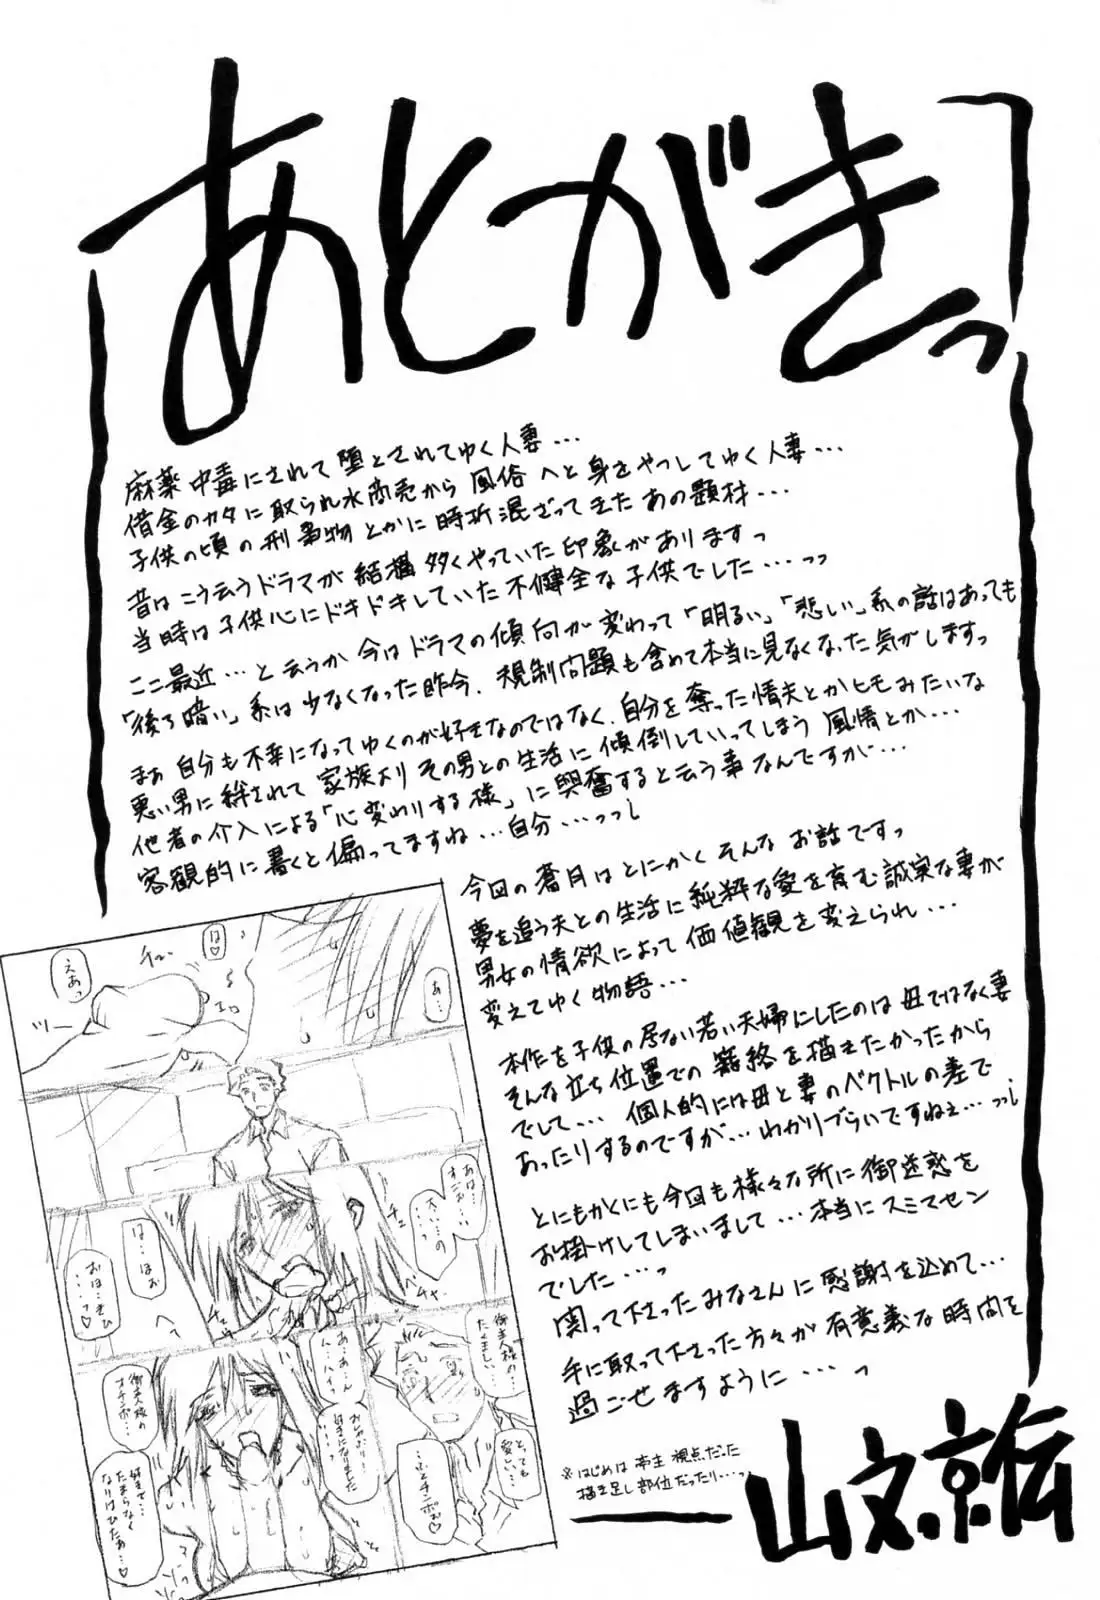 あとがきっ
麻薬中毒にされて堕とされてゆく人妻・・・
借金のカタに取られ水商売から風俗へと身をやつしてゆく人妻・・・
子供の頃の刑事物とかに時折混ざってきたあの題材・・・
昔はこう云うドラマが結構多くやっていた印象がありますっ
当時は子供心にドキドキしていた不健全な子供でした・・・っっ
ここ最近・・・と云うか今はドラマの傾向が変わって「明るい」「悲しい」系の話はあっても
「後ろ暗い」系は少なくなった昨今、規制問題も含めて本当に見なくなった気がしますっ
まぁ自分も不幸になってゆくのが好きなのではなく、自分を奪った情夫とかヒモみたいな
悪い男に絆されて家族よりその男との生活に傾倒していってしまう風情とか・・・
他者の介入による「心変わりする様」に興奮すると云う事なんですが・・・
客観的に書くと偏ってますね・・・自分・・・っっし
今回の蒼月はとにかくそんなお話ですっ
夢を追う夫との生活に純粋な愛を育む誠実な妻が
男女の情欲によって価値観を変えられ・・・
変えてゆく物語・・・
本作を子供の居ない若い夫婦にしたのは母ではなく妻
そんな立ち位置での寵絡を描えたかったから
でして・・・個人的には母と妻のベクトルの差で
あったりするのですが・・・わかりづらいですねぇ・・・っっし
とにもかくにも今回も様々な所に御迷惑を
お掛けしてしまいまして・・・本当にスミマセン
でした・・・っ
関って下さったみなさんに感謝を込めて・・・
手に取って下さった方々が有意義な時間を
過ごせますように・・・っ
※はじめは亭主視点だった
描き足し部位だったり・・・っ
山文京伝
えあっ
チュ
は♡
あ・・・
ツー
エロ
あは・・・
すごお
大い・・・の
・・・
チュ
は・・・はお
おは・・・きひ
・・・・っ♡
御主人様の・・・
たくましい・・・
あ・・・あ・・・ん
おしゃぶり・・・
好きになりました
とっても
愛しい・・・
・・・ふとチンポお♡
御主人様の
オチンポ・・・
好きで・・・
たまらなく
なりはひたぁ・・・♡